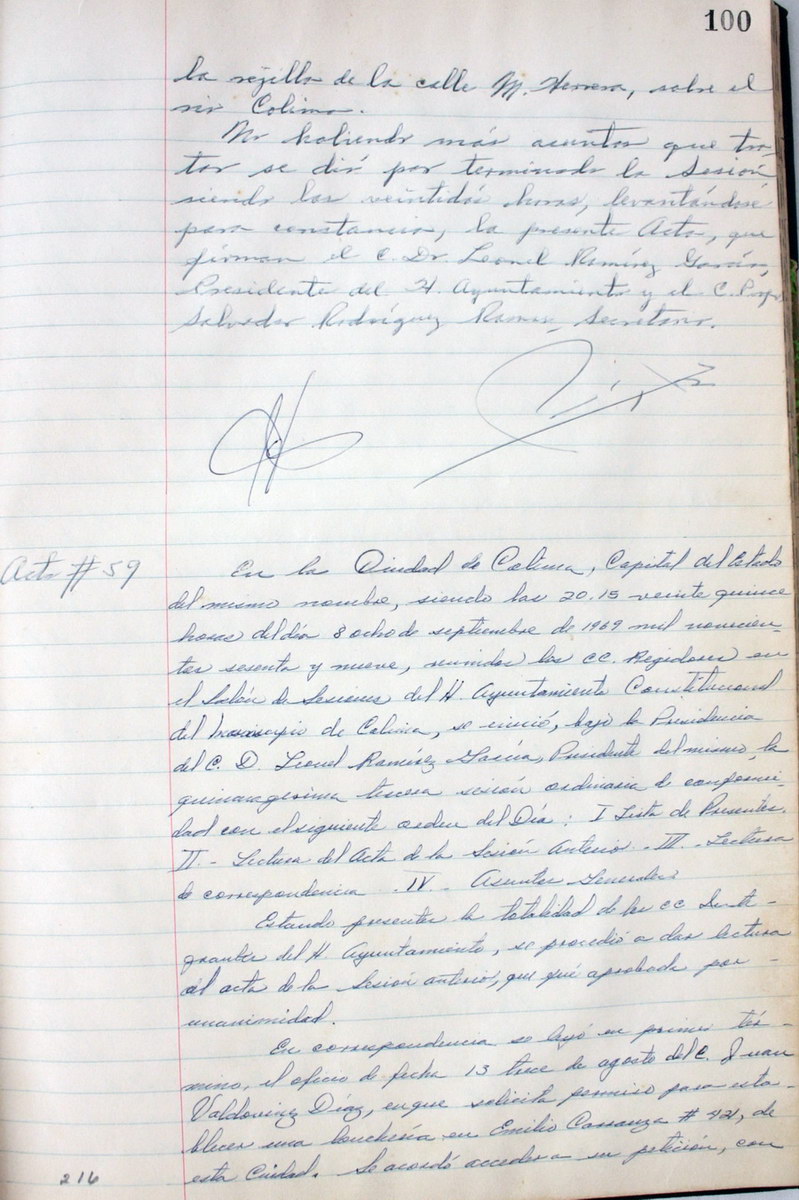 100
la rejilla de la calle M. Herrera, sobre el
rio Colima.
No habiendo más asuntos que tra-
tar se dió por terminada la Sesión
siendo las veintidos horas, levantándose
para constancia, la presente Acta, que
firman el C. Dr. Leonel Ramírez García,
Presidente del H. Ayuntamiento y el C. Profr.
Salvador Rodríguez Secretario.
Acta # 59
En la Ciudad de Colima, Capital del Estado
del mismo nombre, siendo las 20.15 veinte quince
horas del día 8 ocho de septiembre de 1969 mil novecien-
tos sesenta y nueve, reunidos los CC. Regidores en
el Salón de Sesiones del H. Ayuntamiento Constitucional
del Municipio de Colima, se inició, bajo la Presidencia
del C. D. Leonel Ramírez García, Presidente del mismo, la
quincuagesima tercera sesión ordinaria de conformi-
dad con el siguiente orden del Día: I Lista de Presentes.
II.- Lectura del Acta de la Sesión Anterior.- III.- Lectura
de correspondencia.- IV.- Asuntos Generales.
Estando presentes la totalidad de los CC Inte-
grantes del H. Ayuntamiento, se procedió a dar lectura
al acta de la Sesión anterior, que fué aprobada por -
unanimidad.
En correspondencia se leyó en primer tér-
mino, el oficio de fecha 13 trece de agosto del C. Juan
Valdovinez Díaz, en que solicita permiso para esta-
blecer una lonchería en Emilio Carranza # 421, de
esta Ciudad. Se acordó acceder a su petición, con
216